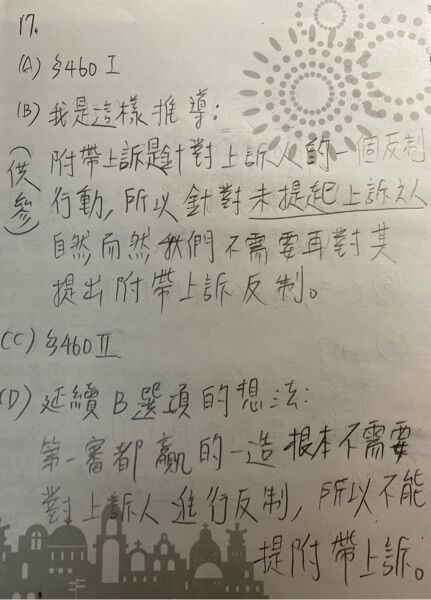 17.
(A) §460 I
(B) 我是這樣推導:
(供參)
附帶上訴是針對上訴人的一個反制
行動,所以針對未提起上訴之人
自然而然我們不需要再對其
提出附帶上訴反制。
(C) §460 II
(D) 延續B選項的想法:
第一審都贏的一造根本不需要
對上訴人進行反制,所以不能
提附帶上訴。